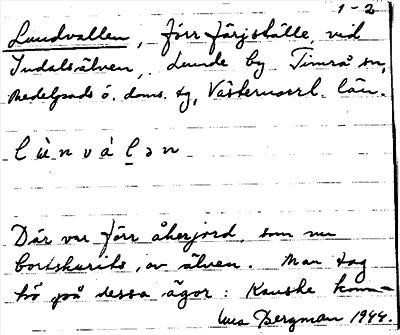 1-2
Lundvallen, förr färjställe vid
Indalsälven, Lunde by Timrå sn,
Medelpads ö. doms. tg, Västernorrl. län.
l ù n v á l̠ ə n
Där var förr åkerjord, som nu
bortskurits, av älven. Man tog
hö på dessa ägor: Kanske kom-
Bergman 1944.